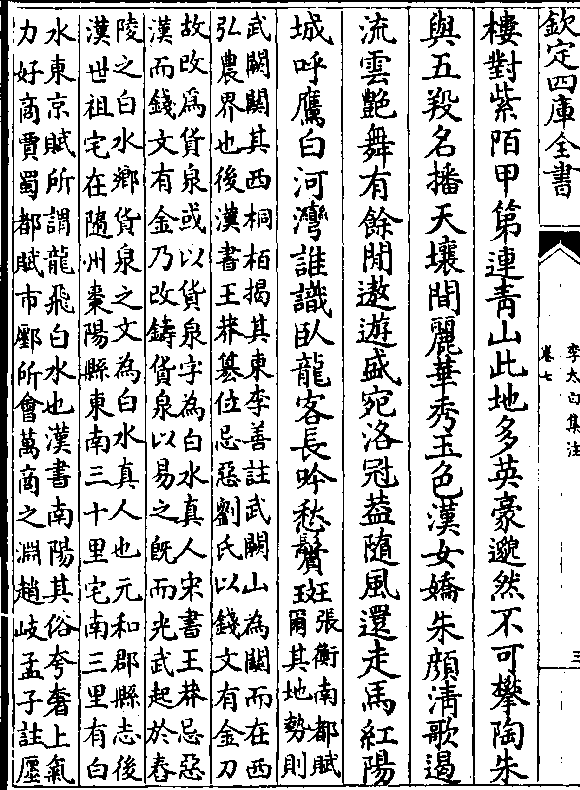 欽定四庫全書
李太白集注
卷七
三
樓對紫陌甲第連青山此地多英豪邈然不可攀陶朱
與五羖名播天壤間麗華秀玉色漢女嬌朱顏清歌遏
流雲艷舞有餘閒遨遊盛宛洛冠葢隨風還走馬紅陽
城呼鷹白河灣誰識臥龍客長吟愁鬢斑
張衡南都賦
爾其地勢則
武闕闗其西桐柏揭其東李善註武闕山為闗而在西
弘農界也後漢書王莽簒位忌惡劉氏以錢文有金刀
故改爲貨泉或以貨泉字為白水真人宋書王莽忌惡
漢而錢文有金乃改鑄貨泉以易之既而光武起於舂
陵之白水鄉貨泉之文為白水真人也元和郡縣志後
漢世祖宅在隨州棗陽縣東南三十里宅南三里有白
水東京賦所謂龍飛白水也漢書南陽其俗夸奢上氣
力好商賈蜀都賦市鄽所會萬商之淵趙岐孟子註廛